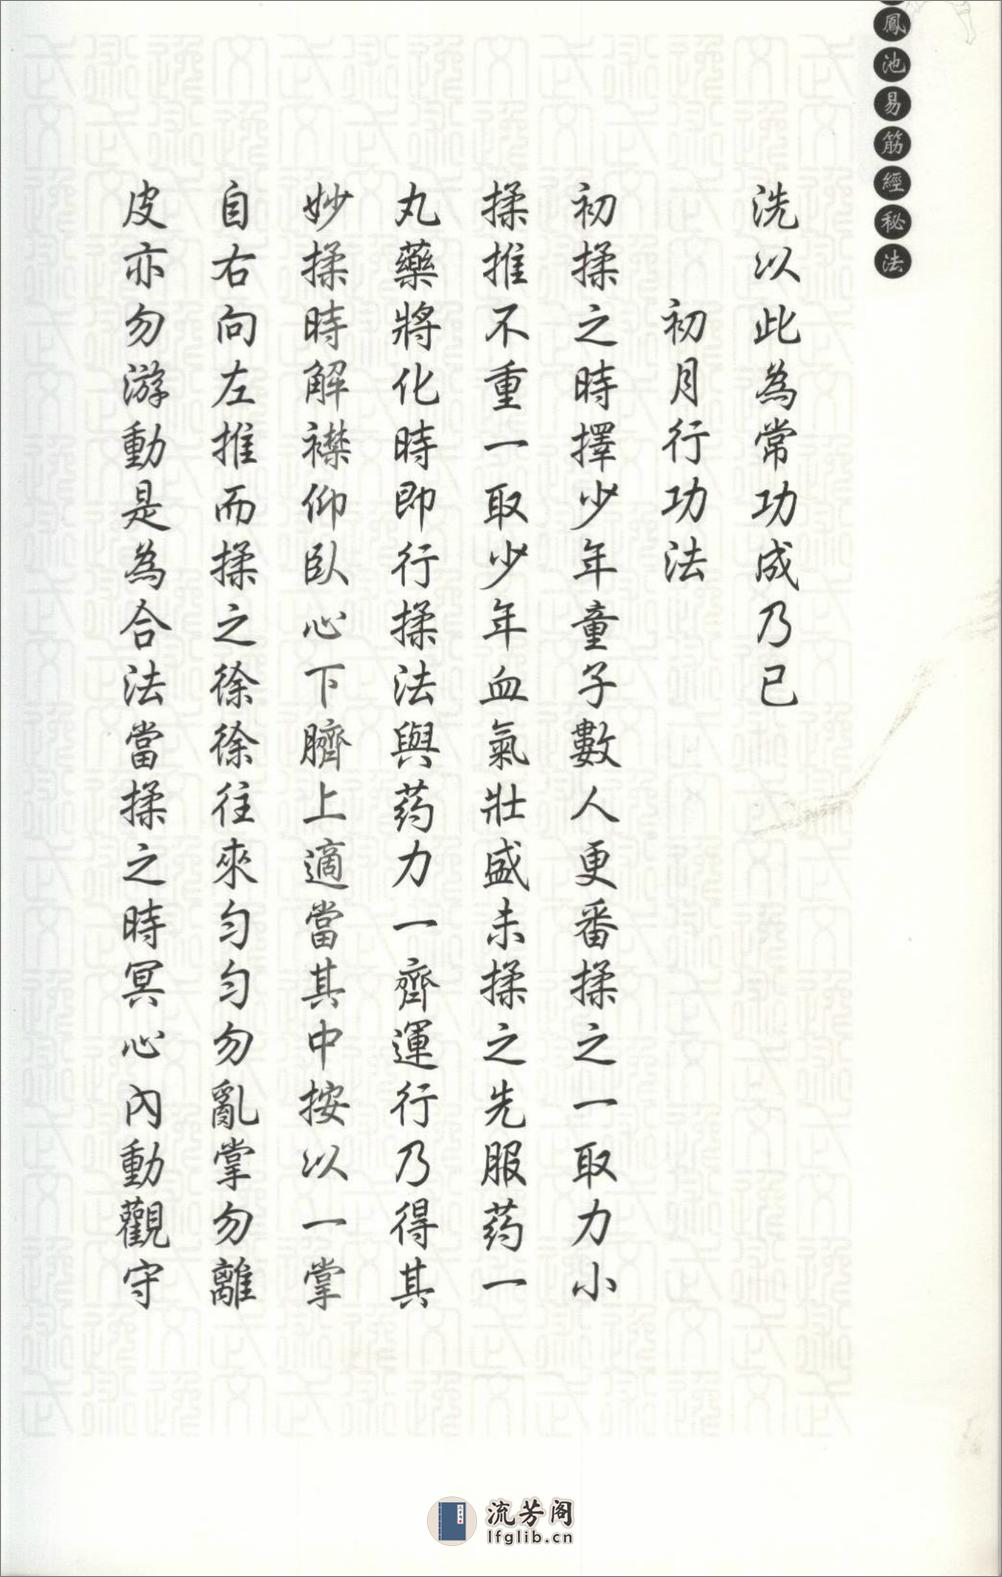 鳳池易筋經秘法
洗以此為常功成乃已
初月行功法
初揉之時擇少年童子數人更番揉之一取力小
揉推不重一取少年血氣壯盛未揉之先服药一
丸藥將化時即行揉法與药力一齊運行乃得其
妙揉時解襟仰臥心下臍上適當其中按以一掌
自右向左推而揉之徐徐往來勻勻勿亂掌勿離
皮亦勿游動是為合法當揉之時冥心內動觀守
流芳阁
lfglib.cn